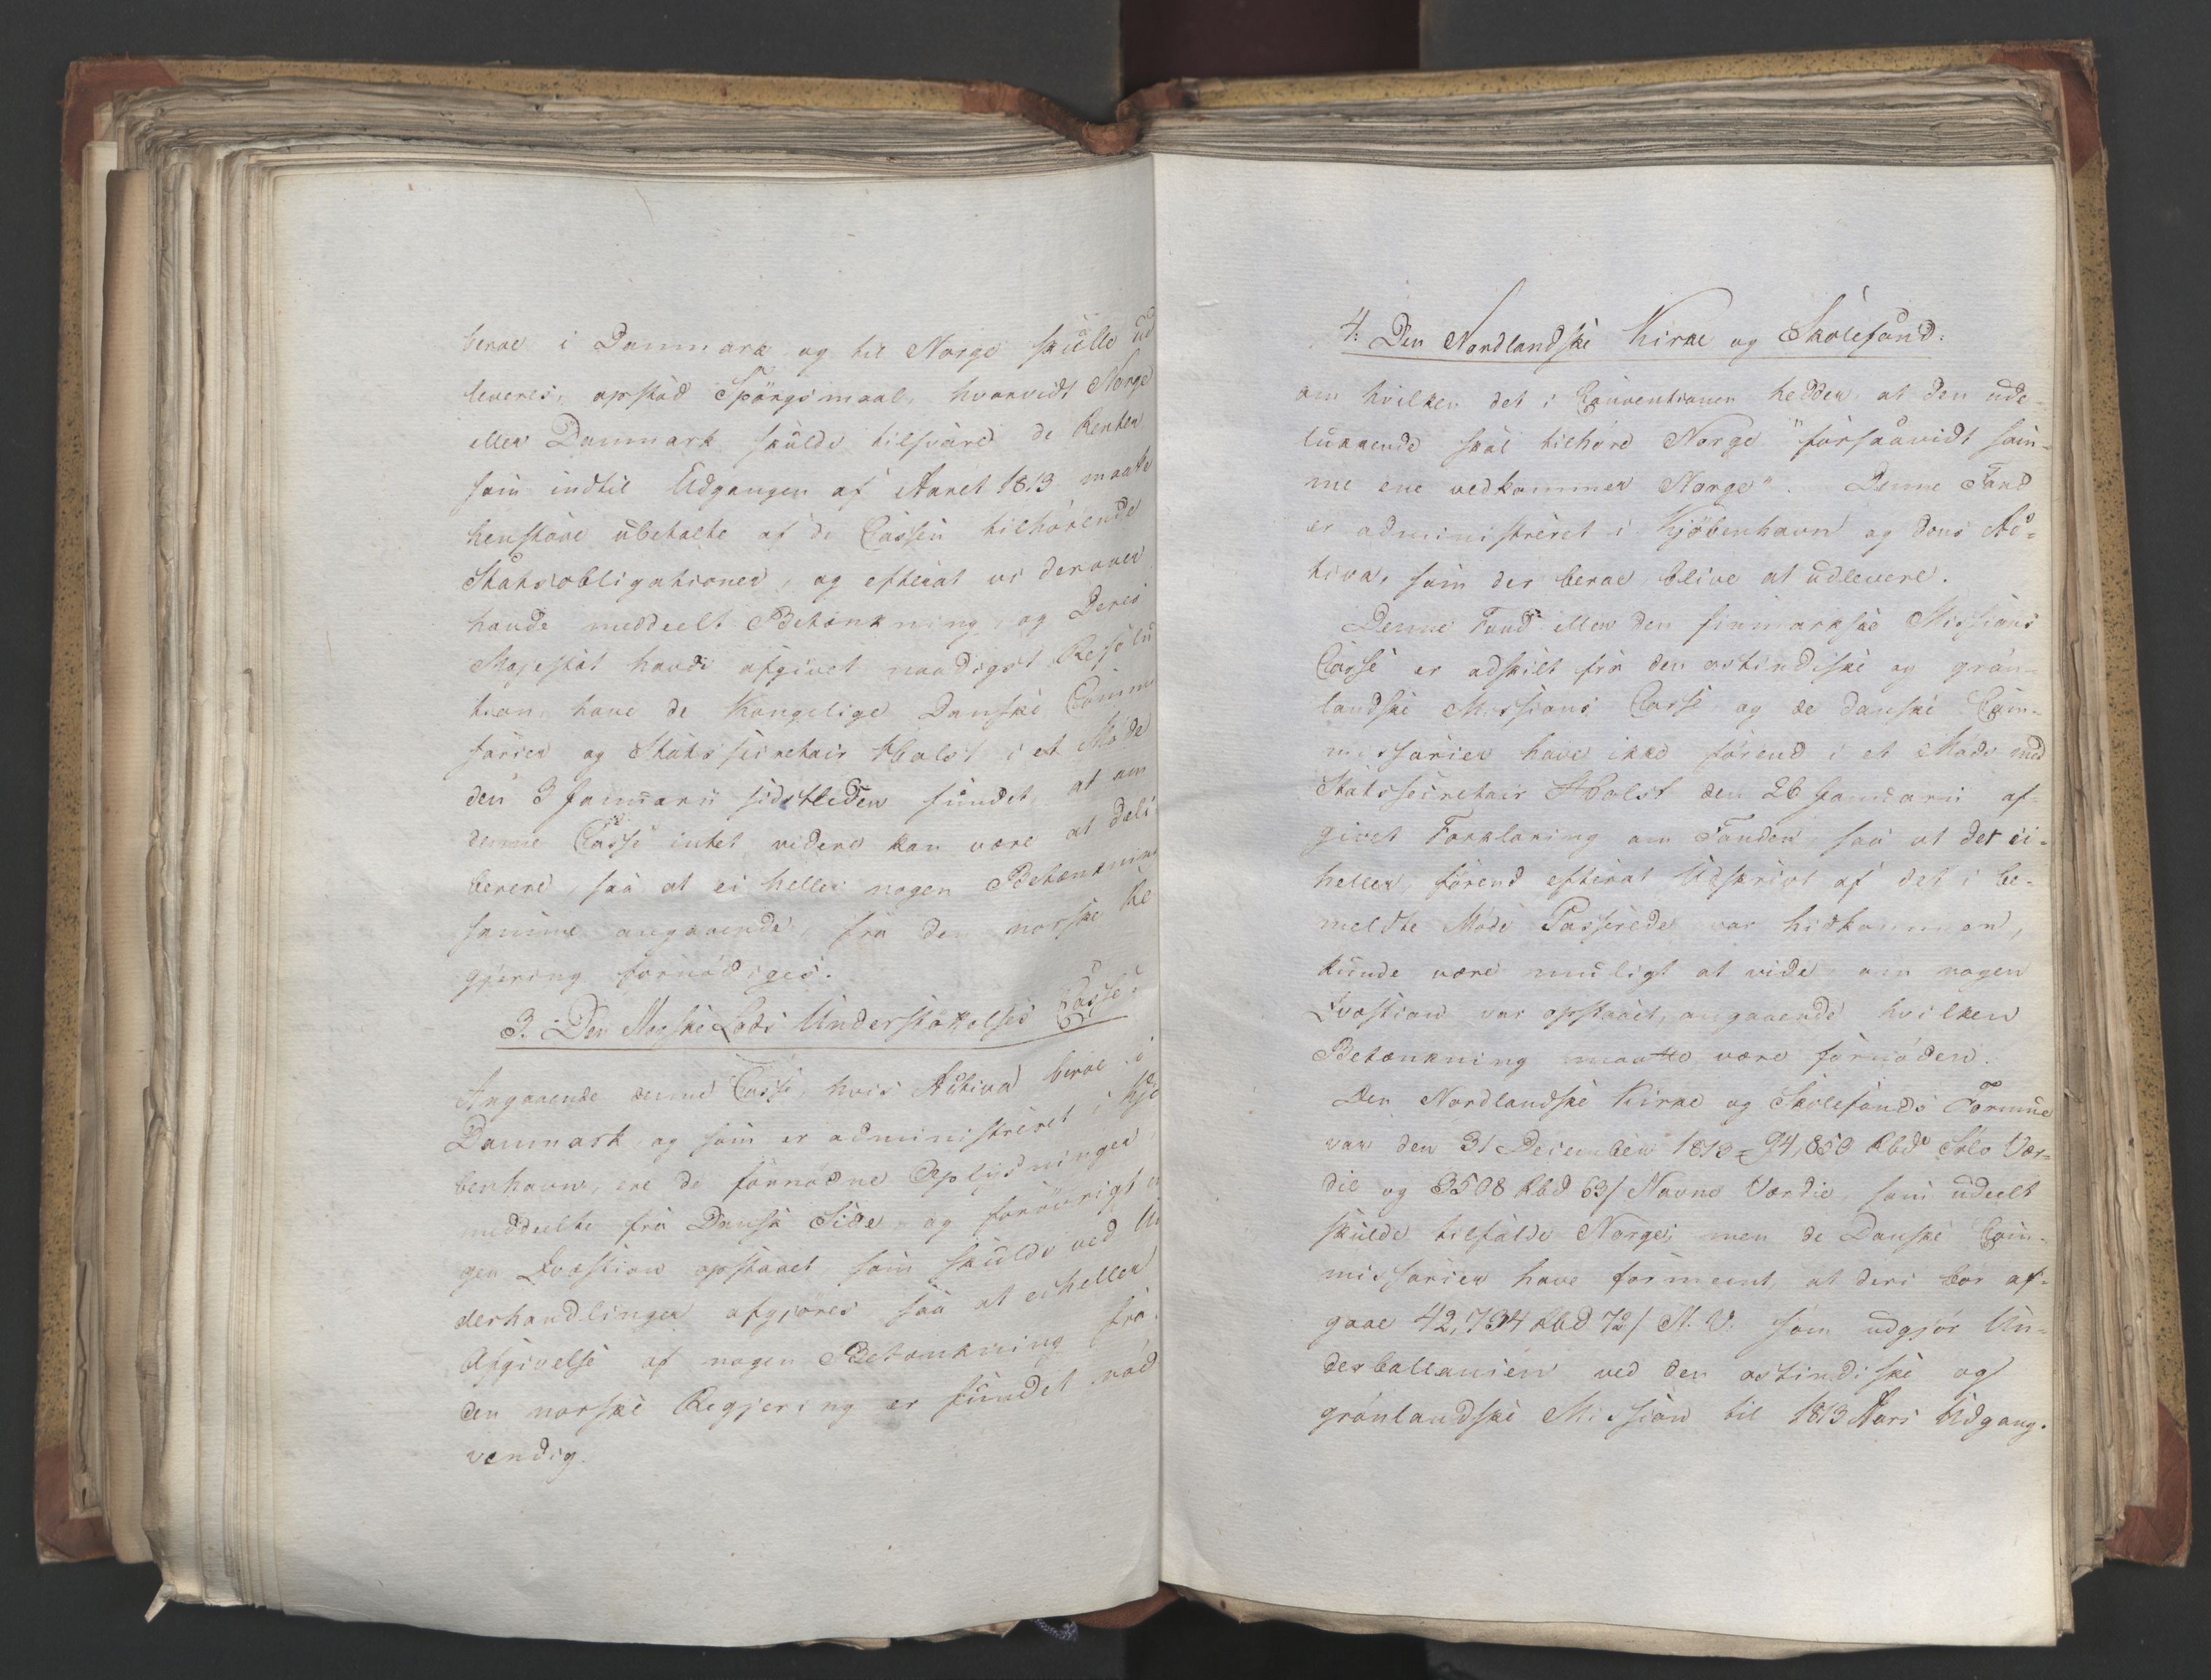 beroe i Danmark og til Norge skulle ud
leveres, opstod Spörgsmaal, hvorvidt Norge
eller Danmark skulde tilsvare de Renter
som indtil Udgangen af Aaret 1813 maatte
henstaae ubetalte af de Cassen tilhörende
Statsobligationer, og efterat vi derover
havde meddeelt Betænkning, og Deres
Majestæt havde afgivet naadigst Resolu
tion, have de Kongelige Danske Commis
sarier og Statssecretair Holst i et Möde
den 3 Januarii sidstleden fundet, at om
denne Casse intet videre kan være at deli
berere, saa at ei heller nogen Betænkning
samme angaaende, fra den norske Re
gjering fornödiges.
3. Den Norske Lods Understöttelses Casse:
Angaaende denne Casse, hvis Activa beroe i
Danmark og som er administreret i Kjö
benhavn, ere de fornödne Oplysninger
meddeelte fra Dansk Side, og forövrigt in
gen Qvæstion opstaaet, som skulde ved Un
derhandlinger afgjöres saa at eiheller
Afgivelse af nogen Betænkning fra
den norske Regjering er fundet nöd
vendig.
4. Den Nordlandske Kirke og Skolefond:
om hvilken det i Conventionen hedder, at den ude
lukkende skal tilhöre Norge "forsaavidt sam-
me ene vedkommer Norge". Denne Fond
er administreret i Kjöbenhavn og dens Ac-
tiva, som der beroe, blive at udlevere.
Denne Fond eller den finmarkske Missions
Casse er adskilt fra den ostindiske og grön-
landske Missions Casse, og de danske Com-
missarier have ikke förend i et Möde med
Statssecretair Holst den 26 Januarii af-
givet Forklaring om Fonden, saa at det ei-
heller, förend efterat Udskrivt af det i be-
meldte Möde Passerede var hidkommen,
kunde være muligt at vide, om nogen
Qvæstion var opstaaet, angaaende hvilken
Betænkning maatte være fornöden.
Den Nordlandske Kirke og Skolefonds Formue
var den 31 December 1813 = 94,859 Rbd Sölv Vær-
die og 3508 Rbd 63/ Navne Værdie, som udeelt
skulde tilfalde Norge; men de Danske Com-
missarier have formeent, at deri bör af-
gaae 42,734 Rbd 72/ N. V. som udgjör Un-
derballancen ved den ostindiske og
grönlandske Mission til 1813 Aars Udgang.